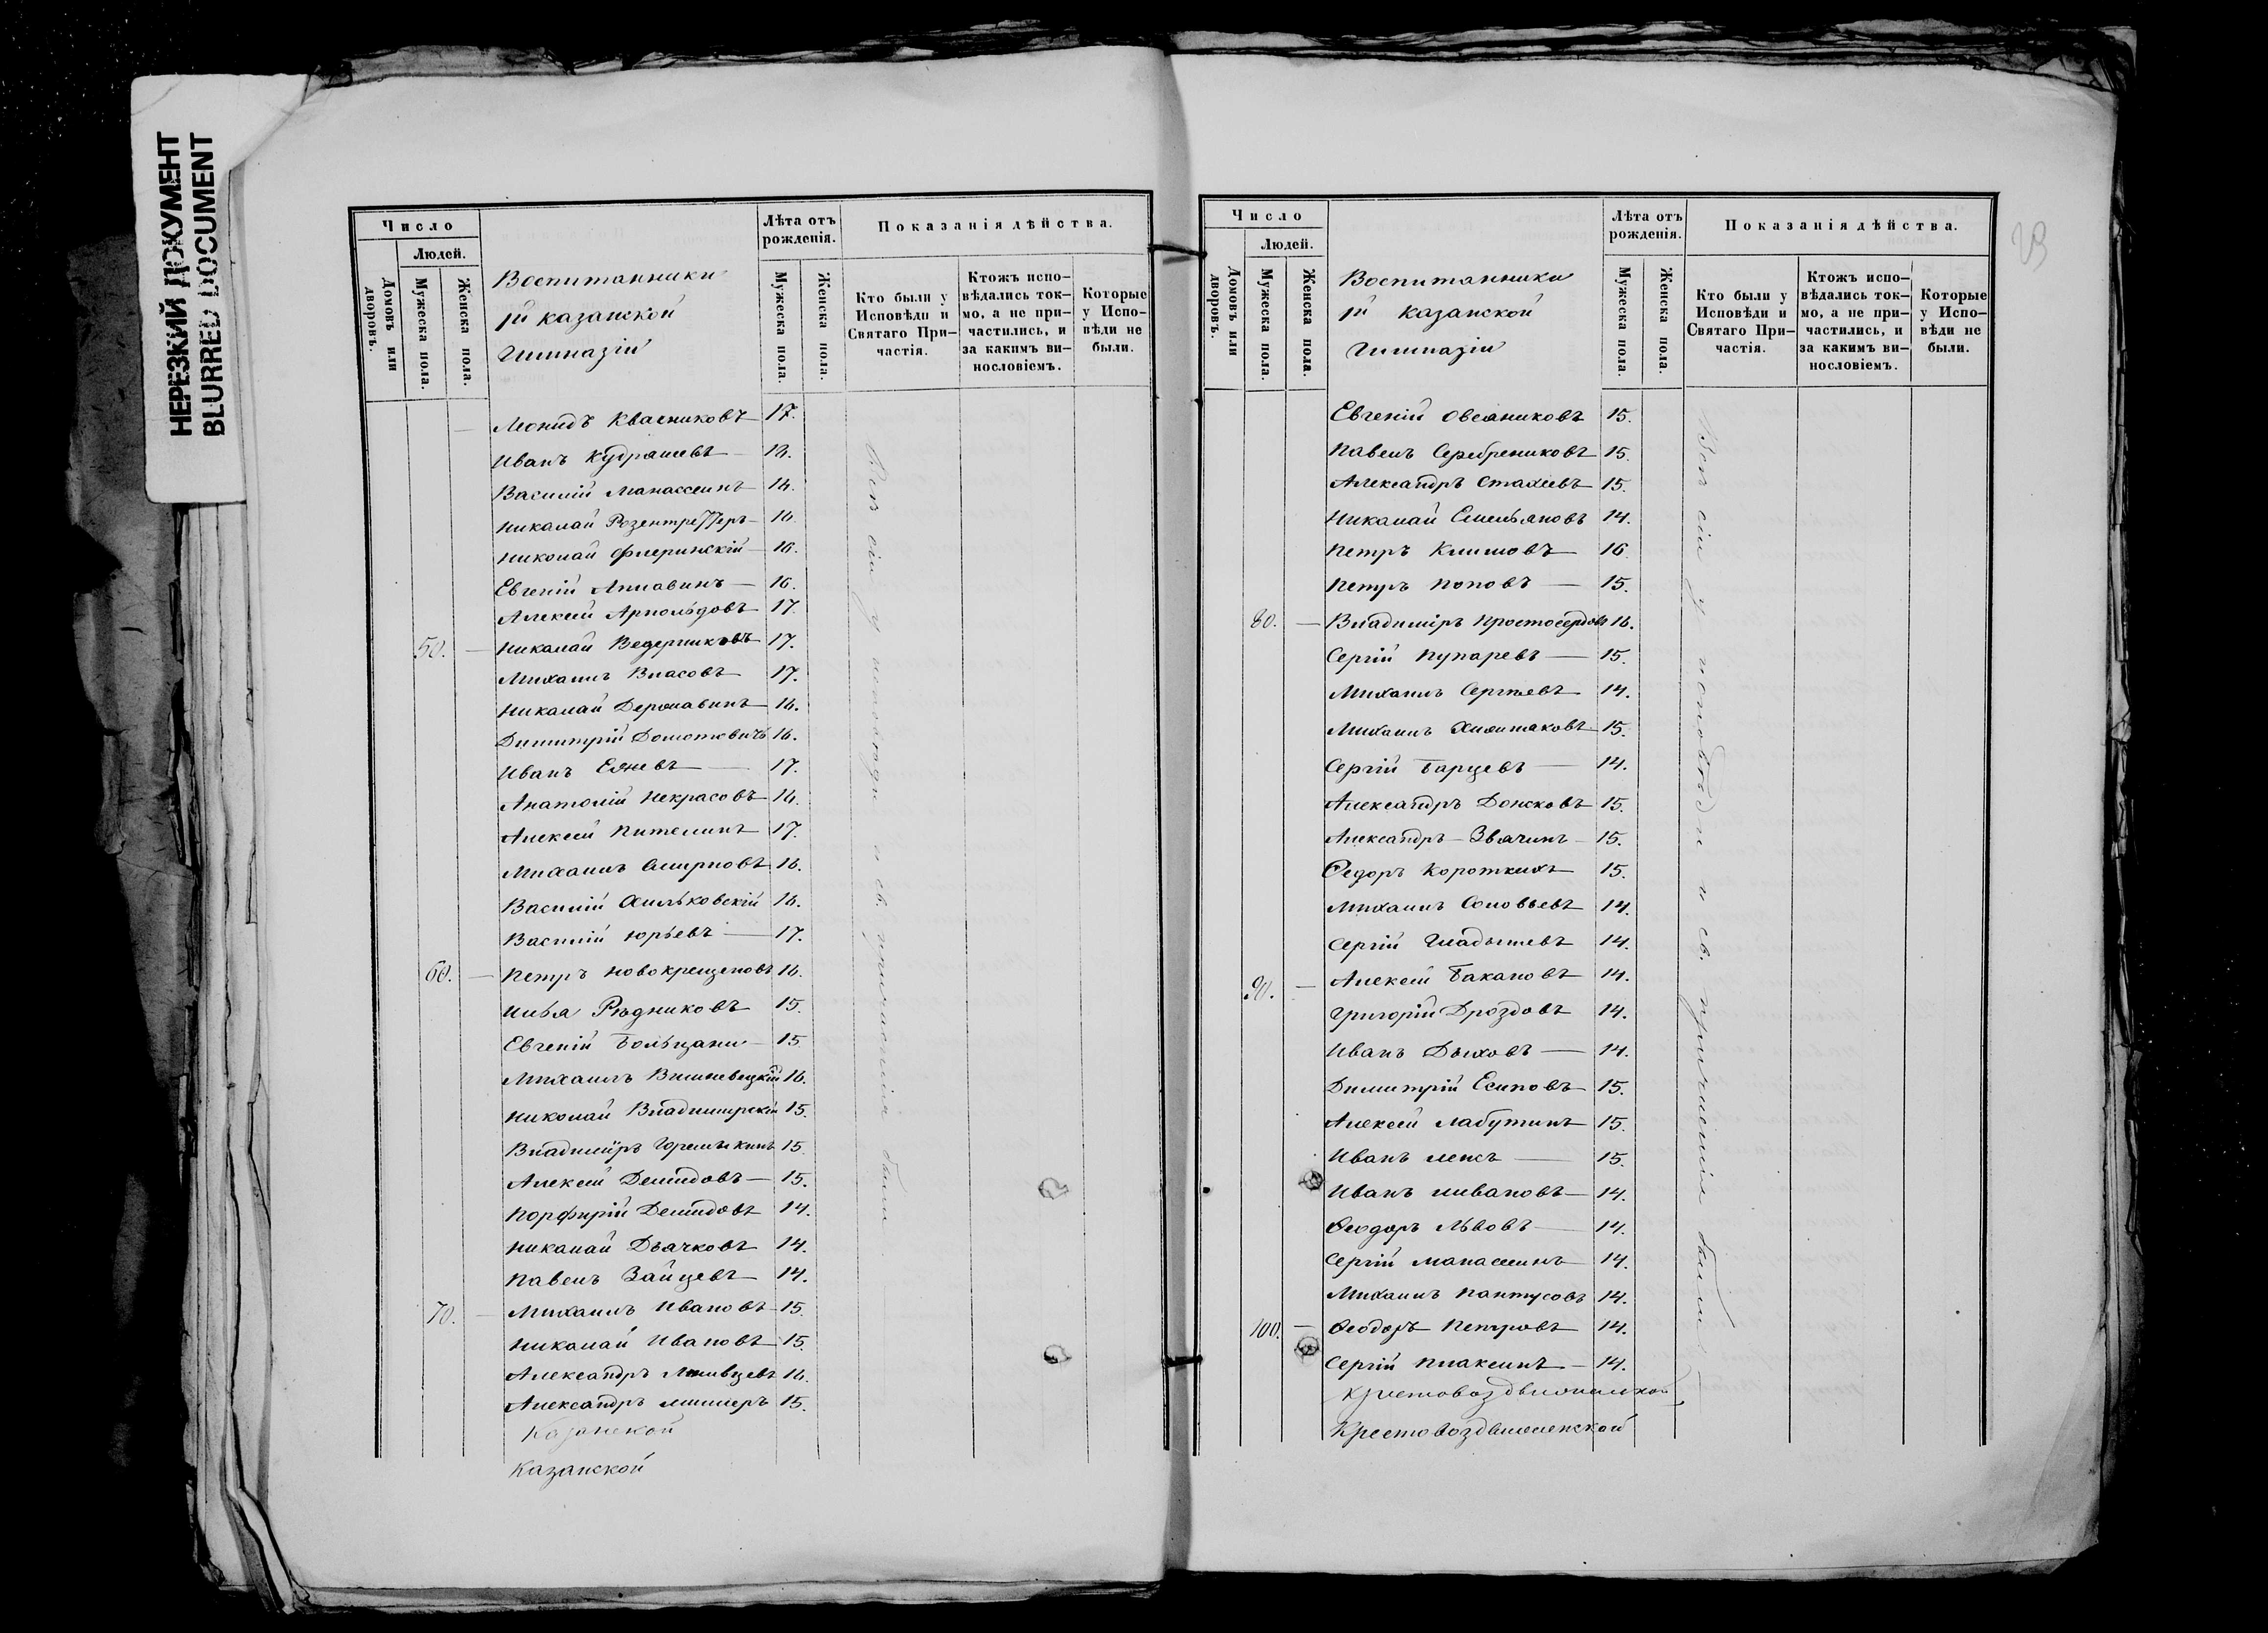 НЕРЕЗКИЙ ДОКУМЕНТ
BLURRED DOCUMENT
Число
Людей.
Домовъ или дворовъ.
Мужеска пола.
Женска пола.
Воспитанники
1й казанской
Гимназіи
Лѣта отъ рожденія.
Мужеска пола.
Женска пола.
Показанія дѣйства.
Кто были у Исповѣди и Святаго При-частія.
Ктожъ испо-вѣдались ток-мо, а не при-частились, и за какимъ ви-нословіемъ.
Которые у Испо-вѣди не были.
Леонидъ Квасниковъ 17.
Иванъ Кудряшевъ 18.
Василій Манассеинъ 14.
Николай Розентреттеръ 16.
Николай Флеринскій 16.
Евгеній Аннавинъ 16.
Алексѣй Арнольдовъ 17.
50. Николай Ведерниковъ 17.
Михаилъ Власовъ 17.
Николай Державинъ 16.
Димитрій 16.
Иванъ 17.
Анатолій Некрасовъ 16.
Алексѣй Пителинъ 17.
Михаилъ Смирновъ 16.
Василій Хильковскій 16.
Василій Юрьевъ 17.
60. Петръ Новокрещеновъ 16.
Илья Рѣдниковъ 15.
Евгеній Больцани 15
Михаилъ Вишневецкій 16.
Николай Владимирскій 15.
Владиміръ Горемыкинъ 15.
Алексѣй Демидовъ 15.
Порфирій Демидовъ 14.
Николай Дьячковъ 14.
Павелъ Зайцевъ 14.
70. Михаилъ Ивановъ 15.
Николай Ивановъ 15.
Александръ 16.
Александръ Миллеръ 15.
Казанской
Казанской
Всѣ сіи у исповѣди и св. причастія были
Число
Людей.
Домовъ или дворовъ.
Мужеска пола.
Женска пола.
Воспитанники
1й казанской
Гимназіи
Лѣта отъ рожденія.
Мужеска пола.
Женска пола.
Показанія дѣйства.
Кто были у Исповѣди и Святаго При-частія.
Ктожъ испо-вѣдались ток-мо, а не при-частились, и за какимъ ви-нословіемъ.
Которые у Испо-вѣди не были.
Евгеній Овсяниковъ 15.
Павелъ Серебрениковъ 15.
Александръ Стахѣевъ 15.
Николай Емельяновъ 14.
Петръ Климовъ 16
Петръ Поповъ 15.
80. Владиміръ Простосердовъ 16.
Сергій Пупаревъ 15.
Михаилъ Сергѣевъ 14.
Михаилъ 15.
Сергій Барцевъ 14.
Александръ Донсковъ 15.
Александръ Звячинъ 15.
Ѳедоръ Короткихъ 15.
Михаилъ Соловьевъ 14.
Сергій Гладышевъ 14.
90. Алексѣй Бакановъ 14.
Григорій Дроздовъ 14.
Иванъ Дыховъ 14.
Димитрій Есиповъ 15.
Алексѣй Лабутинъ 15.
Иванъ 15.
Иванъ Ливановъ 14.
Ѳеодоръ Львовъ 14.
Сергій Манассеинъ 14.
Михаилъ Пантусовъ 14.
100. Ѳеодоръ Петровъ 14.
Сергій Плаксинъ 14.
Крестовоздвиженской
Крестовоздвиженской
Всѣ сіи у исповѣди и св. причастія были